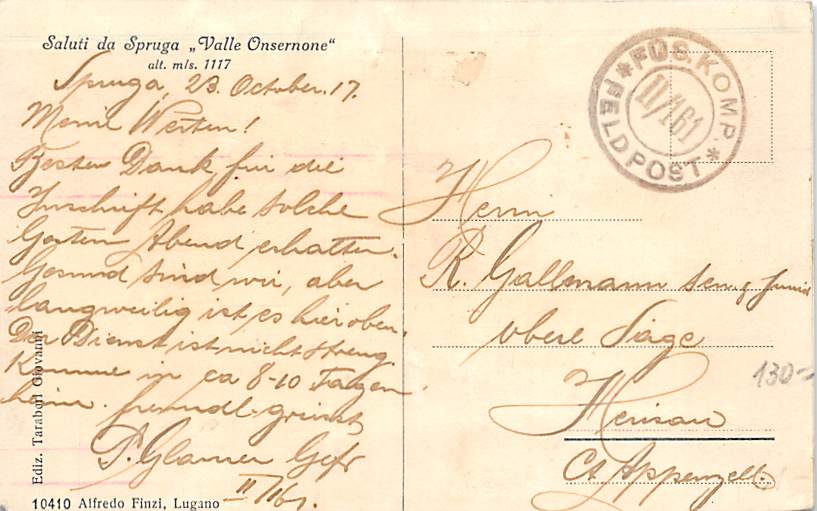 Saluti da Spruga „Valle Onsernone“
alt. m/s. 1117
Spruga, 23. October. 17.
Meine Werten!
Besten Dank für die
Zuschrift, habe solche
Gestern Abend erhalten.
Gesund sind wir, aber
langweilig ist es hier oben.
Der Dienst ist nicht streng
Komme in ca 8-10 Tagen
heim. freundl. grüsst
Glarner Gefr
II/161.
Ediz. Tarabori Giovanni
10410 Alfredo Finzi, Lugano
* FÜS. KOMP *
II/161
FELDPOST
Herrn
R. Gallmann sen. & Junior
obere Säge
Herisau
Ct. Appenzell.
130-